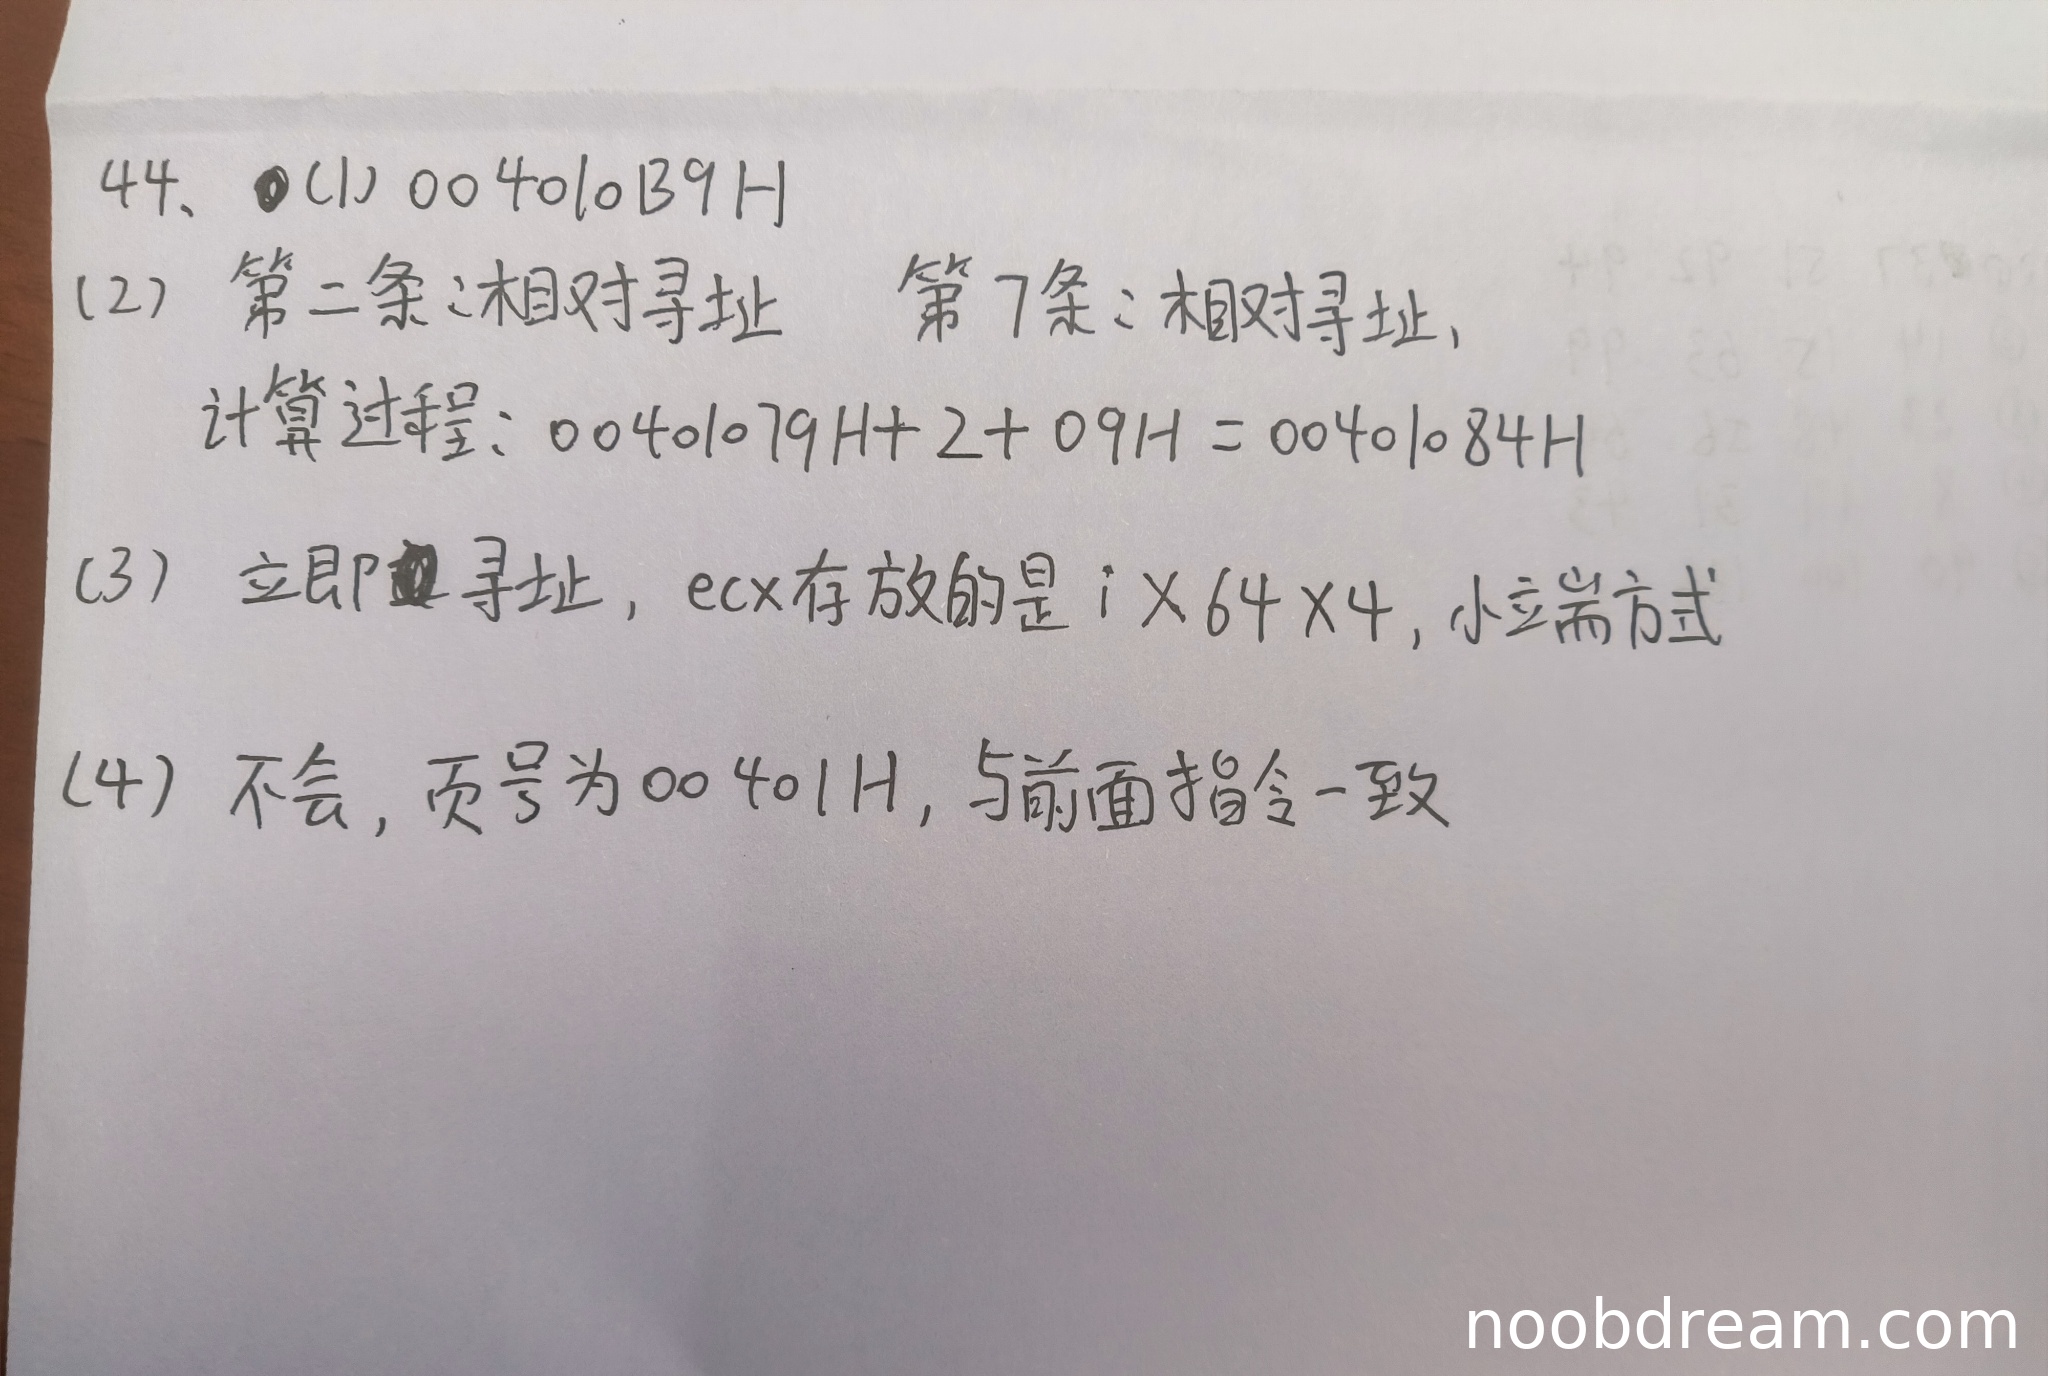 44、(1) 004010B9H
(2) 第二条:相对寻址 第7条:相对寻址,
计算过程: 00401079H+2+09H=00401084H
(3) 立即寻址, ecx存放的是i×64×4, 小端方式
(4) 不会, 页号为00401H, 与前面指令一致
noobdream.com